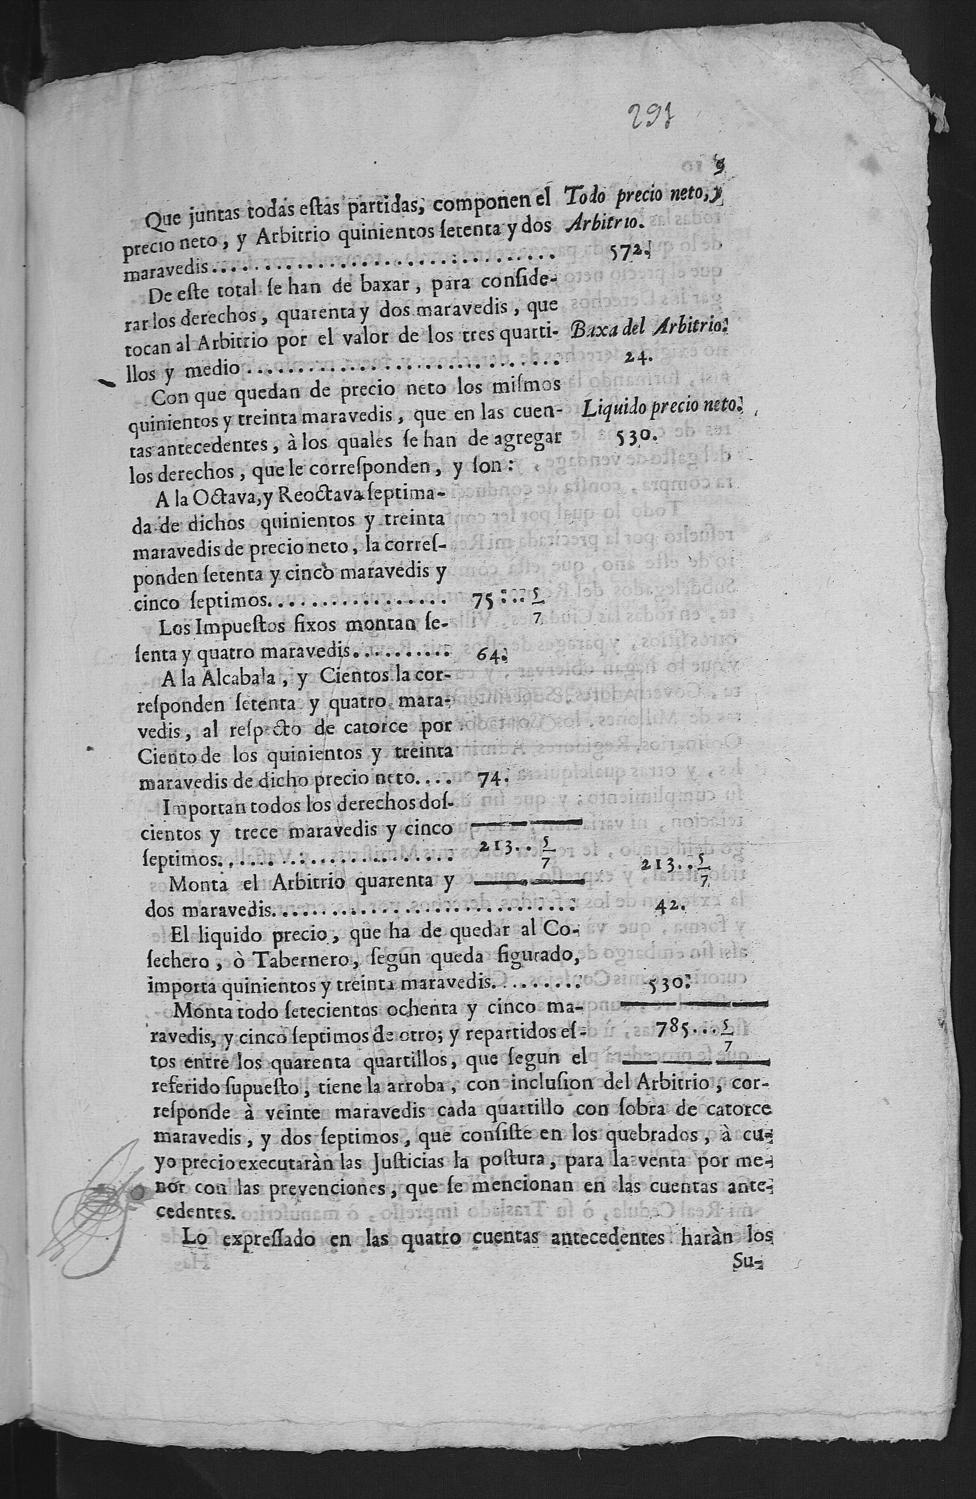 291
9
Que juntas todas estas partidas, componen el Todo precio neto, y
precio neto, y Arbitrio quinientos setenta y dos Arbitrio.
maravedis.......................... 572.
De este total se han de baxar, para conside-
rar los derechos, quarenta y dos maravedis, que
tocan al Arbitrio por el valor de los tres quarti- Baxa del Arbitrio.
llos y medio.......................... 24.
Con que quedan de precio neto los mismos
quinientos y treinta maravedis, que en las cuen- Liquido precio neto.
tas antecedentes, à los quales se han de agregar 530.
los derechos, que le corresponden, y son:
A la Octava, y Reoctava septima-
da de dichos quinientos y treinta
maravedis de precio neto, la corres-
ponden setenta y cinco maravedis y
cinco septimos................. 75... 5/7
Los Impuestos fixos montan se-
senta y quatro maravedis.......... 64.
A la Alcabala, y Cientos la cor-
responden setenta y quatro mara-
vedis, al respecto de catorce por
Ciento de los quinientos y treinta
maravedis de dicho precio neto.... 74.
Importan todos los derechos dos-
cientos y trece maravedis y cinco
septimos....................... 213.. 5/7 213.. 5/7
Monta el Arbitrio quarenta y
dos maravedis............................. 42.
El liquido precio, que ha de quedar al Co-
sechero, ò Tabernero, segun queda figurado,
importa quinientos y treinta maravedis......... 530.
Monta todo setecientos ochenta y cinco ma-
ravedis, y cinco septimos de otro; y repartidos es- 785... 5/7
tos entre los quarenta quartillos, que segun el
referido supuesto, tiene la arroba, con inclusion del Arbitrio, cor-
responde à veinte maravedis cada quartillo con sobra de catorce
maravedis, y dos septimos, que consiste en los quebrados, à cu-
yo precio executaràn las Justicias la postura, para la venta por me-
nor con las prevenciones, que se mencionan en las cuentas ante-
cedentes.
Lo expressado en las quatro cuentas antecedentes haràn los
Su-